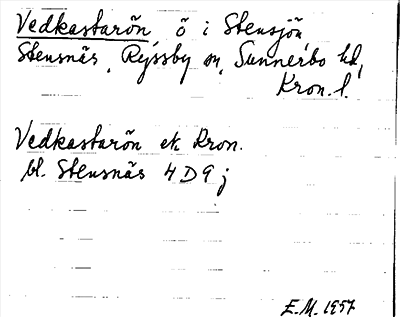 Vedkastarön, ö i Stensjön,
Stensnäs, Ryssby sn, Sunnerbo hd,
Kron. l.
Vedkastarön ek Kron.
bl. Stensnäs 4D9j
E.M. 1957